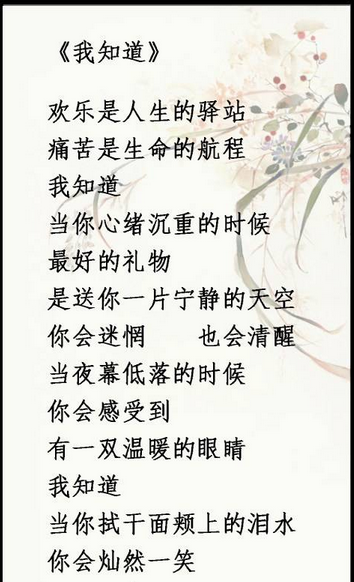 《我知道》
欢乐是人生的驿站
痛苦是生命的航程
我知道
当你心绪沉重的时候
最好的礼物
是送你一片宁静的天空
你会迷惘　　也会清醒
当夜幕低落的时候
你会感受到
有一双温暖的眼睛
我知道
当你拭干面颊上的泪水
你会灿然一笑